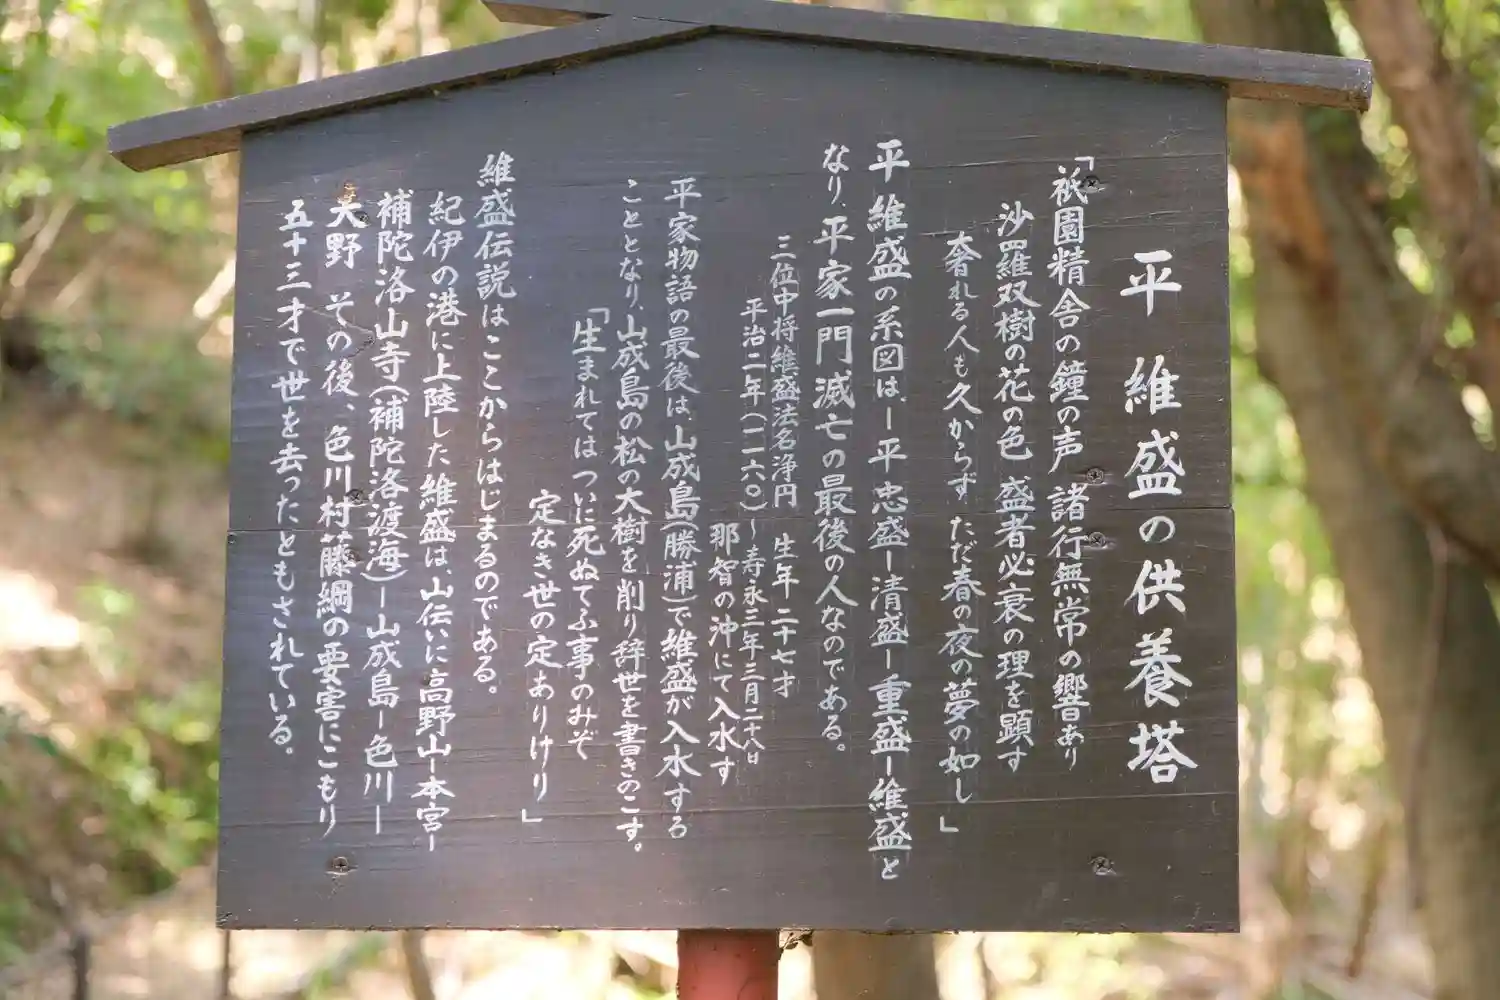 平 維盛の供養塔
「祇園精舎の鐘の声 諸行無常の響あり
沙羅双樹の花の色 盛者必衰の理を顕す
奢れる人も久からず ただ春の夜の夢の如し」
平 維盛の系図は、ー平 忠盛ー清盛ー重盛ー維盛と
なり、平家一門滅亡の最後の人なのである。
三位中将維盛法名浄円 生年 二十七才
平治二年(一一六〇)~寿永三年三月二十八日
那智の沖にて入水す
平家物語の最後は、山成島(勝浦)で維盛が入水する
こととなり、山成島の松の大樹を削り辞世を書きのこす。
「生まれてはついに死ぬてふ事のみぞ
定なき世の定ありけり」
維盛伝説はここからはじまるのである。
紀伊の港に上陸した維盛は、山伝いに高野山ー本宮ー
補陀洛山寺(補陀洛渡海)ー山成島ー色川ー
大野 その後、色川村藤綱の要害にこもり
五十三才で世を去ったともされている。